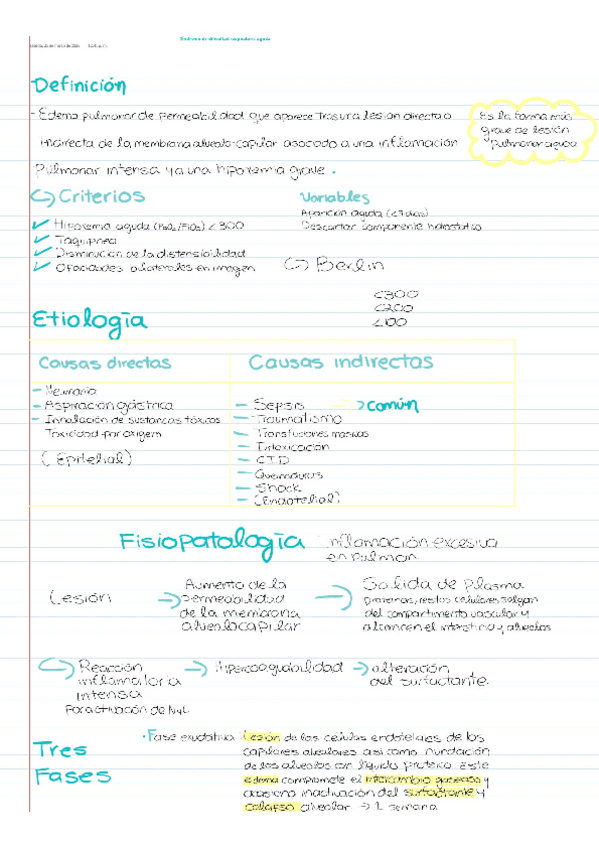 Síndrome de dificultad respiratoria aguda
Definición
- Edema pulmonar de permeabilidad que aparece tras una lesión directa o
indirecta de la membrana alveolo-capilar asociado a una inflamación
Pulmonar intensa y a una hipoxemia grave.
Es la forma más
grave de lesión
pulmonar aguda
Criterios
Hipoxemia aguda (PaO2/FIO2) <300
Taquipnea
Disminucion de la distensibilidad
Opacidades bilaterales en imagen
Variables
Aparición aguda (<7 días)
Descartar componente hidrostático
Berlin
<300
<200
<100
Etiología
Causas directas
Causas indirectas
- Neumonía
- Aspiración gástrica
- Inhalación de sustancias tóxicas
Toxicidad por oxigeno
(Epitelial)
- Sepsis → común
- Traumatismo
- Transfusiones masivas
- Intoxicación
- CID
- Quemaduras
- Shock
- (Endotelial)
Fisiopatología
inflamación excesiva
en pulmon
Lesión
Aumento de la
permeabilidad
de la membrana
alveolocapilar
Salida de plasma
proteinas, restos celulares salgan
del compartimento vascular y
alcancen el intersticio y alveolos
Reacción
inflamatoria
intensa
Por activación de
Hipercoagubilidad
alteración
del surfactante
Tres
Fases
· Fase exudativa: Lesión de las celulas endoteliales de los
capilares alveolares asi como inundación
de los alveolos con liquido proteico. Este
edema compromete el intercambio gaseoso y
ocasiona inactivación del surfactante y
colapso alveolar → 1 semana